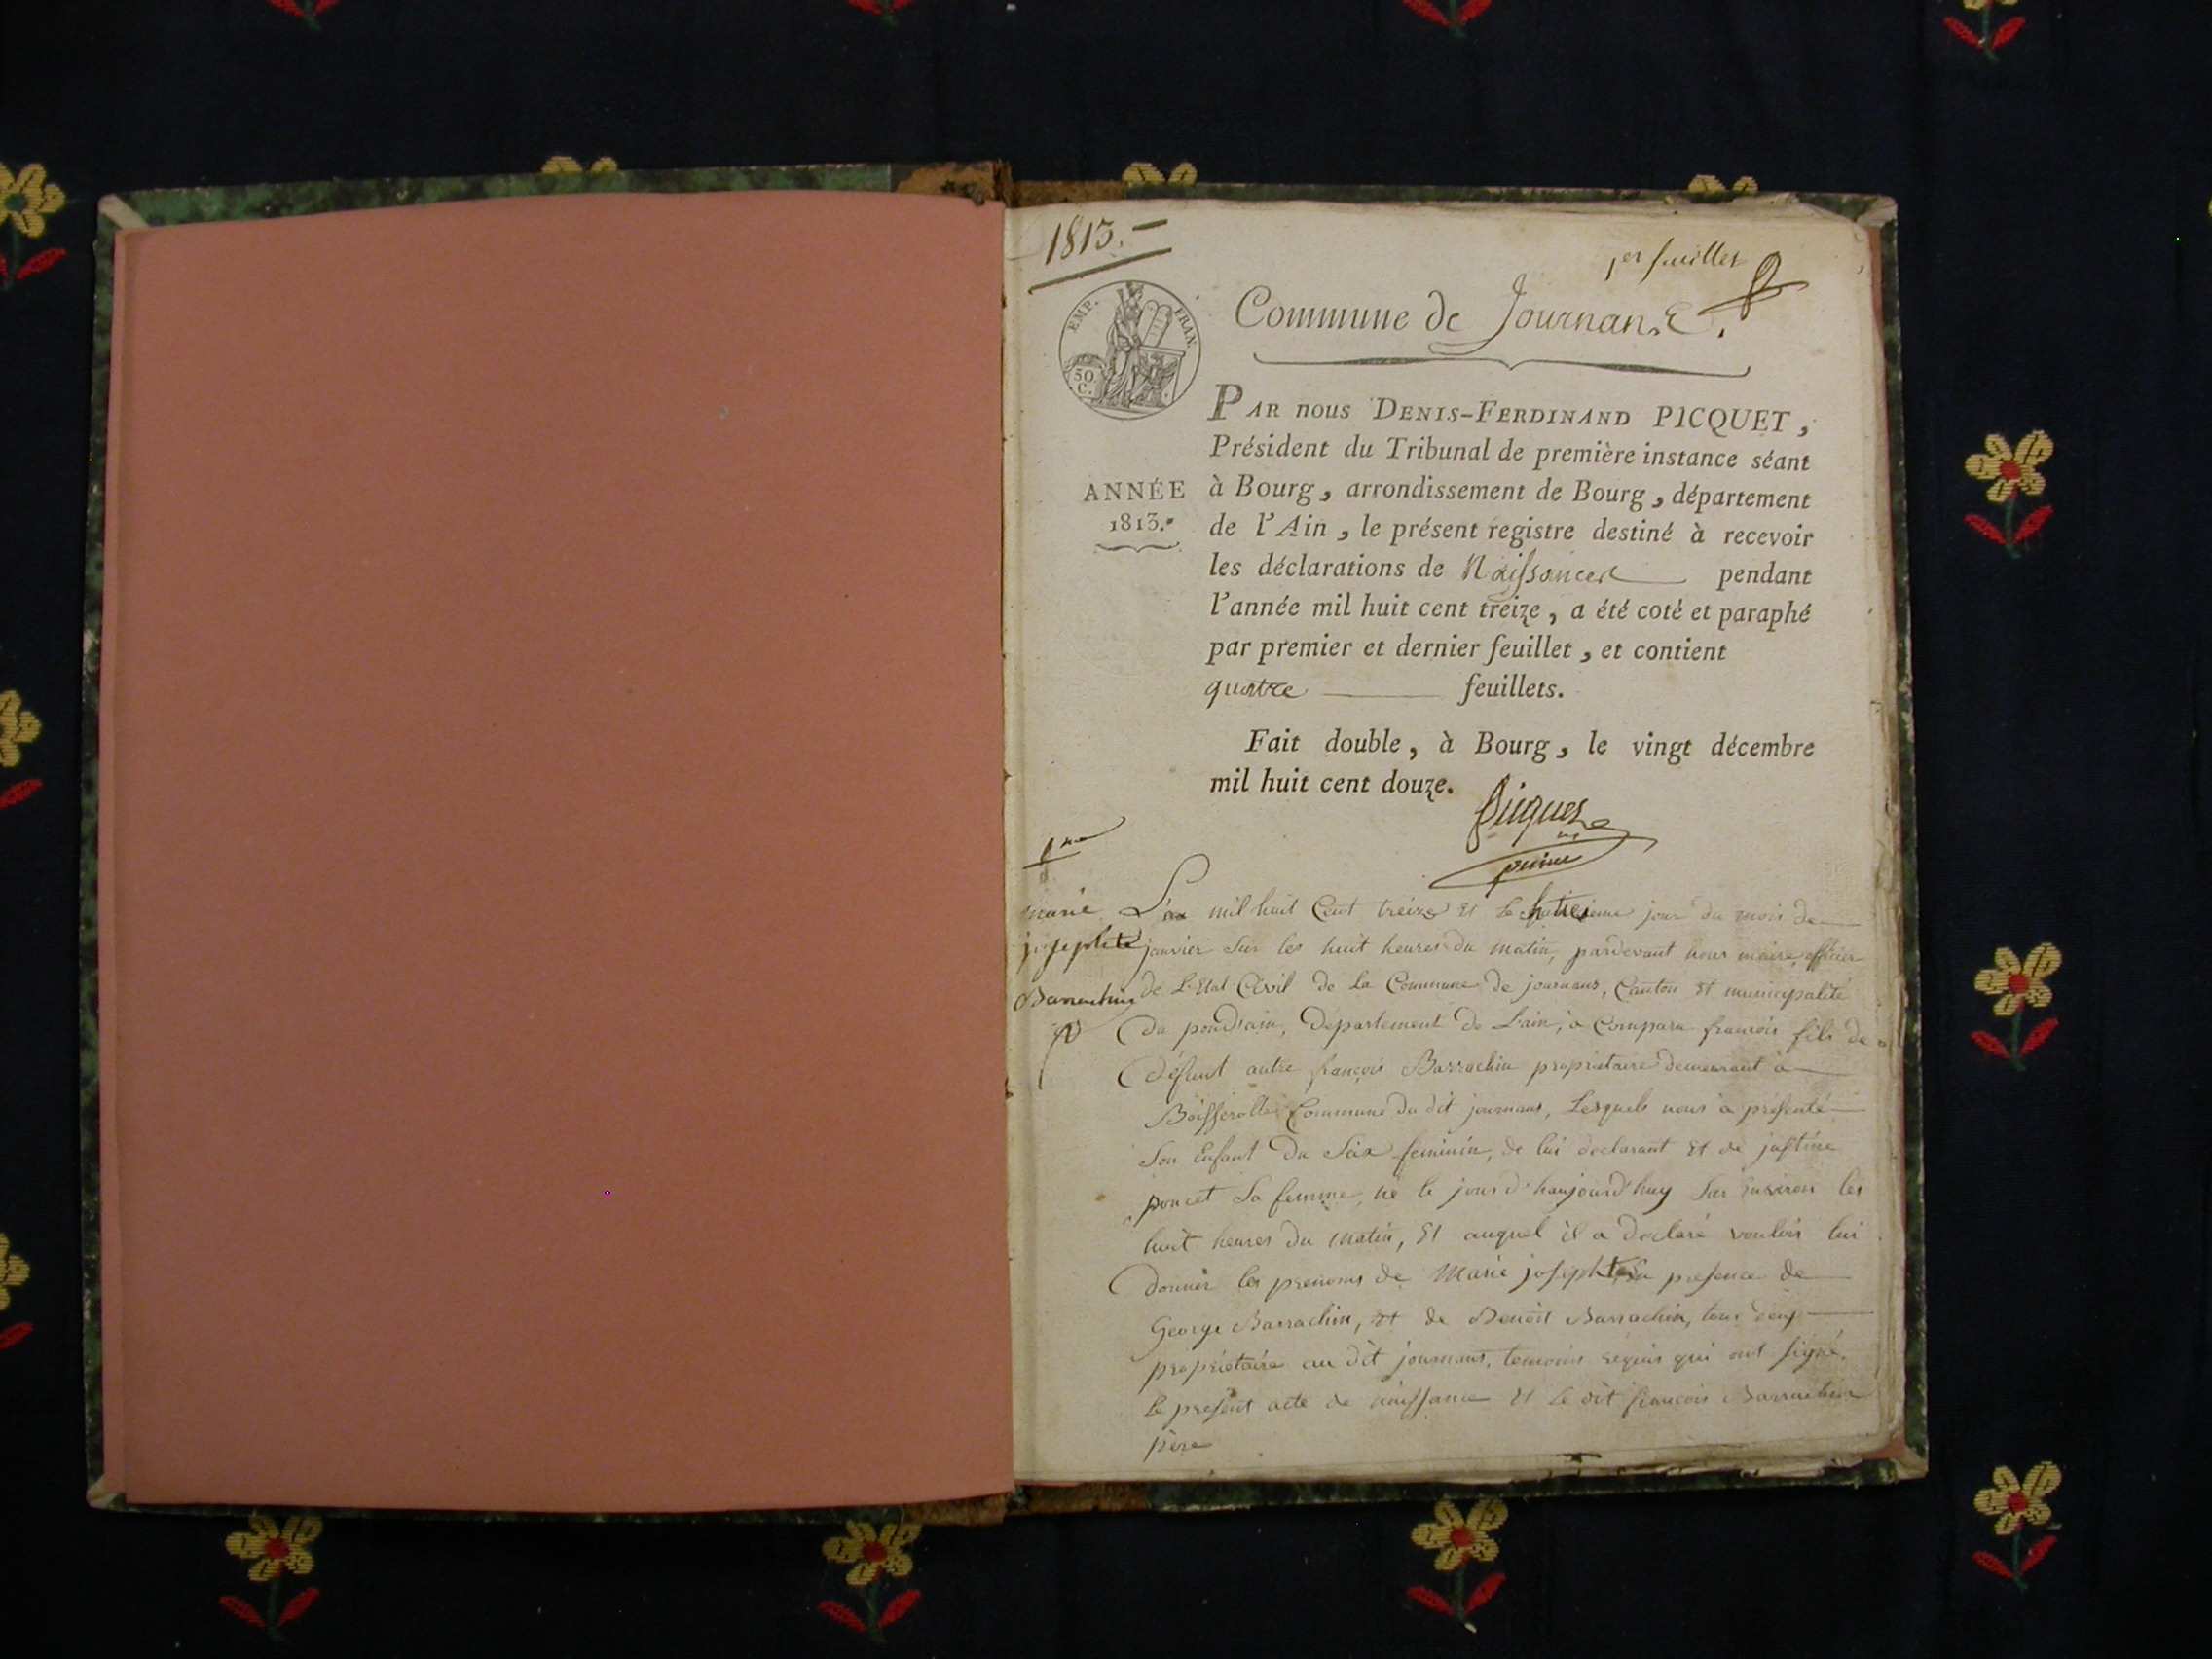 1813.-
1er feuillet
EMP. FRAN.
50 C.
Commune de Journans.
PAR nous DENIS-FERDINAND PICQUET,
Président du Tribunal de première instance séant
ANNÉE
1813.
à Bourg, arrondissement de Bourg, département
de l'Ain, le présent registre destiné à recevoir
les déclarations de Naissances pendant
l'année mil huit cent treize, a été coté et paraphé
par premier et dernier feuillet, et contient
quatre feuillets.
Fait double, à Bourg, le vingt décembre
mil huit cent douze.
Picquet
marie
josephte
Barrachin
L'an mil huit Cent treize Et le jour du mois de
janvier Sur les huit heures du matin, pardevant nous maire, officier
de L'Etat Civil de La Commune de journans, Canton Et municipalité
de pondain, Département de L'ain, a Comparu francois fils de
défunt autre françois Barrachin propriétaire demeurant à
Boisserolle Commune du dit journans, Lesquels nous a présenté
Son Enfant du Sexe feminin, de lui declarant Et de justine
poncet Sa femme, né le jour d'haujourd'huy Sur Environ les
huit heures du matin, Et auquel il a declaré vouloir lui
donner les prenoms de Marie josephte, En presence de
George Barrachin, Et de Benoit Barrachin, tous deux
propriétaire au dit journans, temoins requis qui ont signé
le présent acte de naissance Et le dit francois Barrachin
père